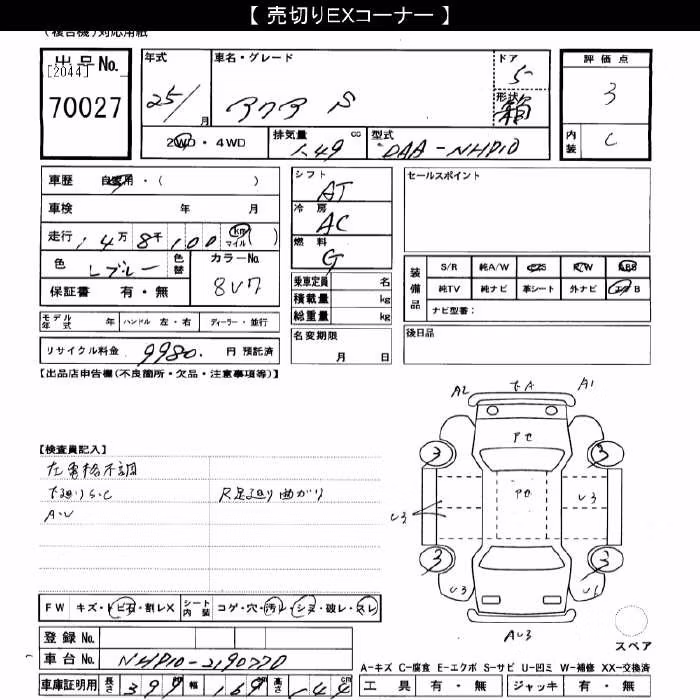 【 売切りEXコーナー 】
(複合機)対応用紙
出品No.
[2044]
70027
年式
25/ 月
車名・グレード
アクア S
ドア
5
形状
箱
評価点
3
内装
C
2WD・4WD
排気量
1.49 cc
型式
DAA-NHP10
車歴 自家用・( )
車検 年 月
走行 14万8千100 km マイル ( )
色 Lブルー 色替 カラーNo.
8V7
保証書 有・無
モデル年式 年 ハンドル 左・右 ディーラー・並行
リサイクル料金 9980. 円 預託済
シフト
AT
冷房
AC
燃料
G
乗車定員 名
積載量 kg
総重量 kg
名変期限
月 日
セールスポイント
装備品
S/R 純A/W P/S P/W ABS
純TV 純ナビ 革シート 外ナビ エアB
ナビ型番：
後日品
【出品店申告欄(不良箇所・欠品・注意事項等)】
【検査員記入】
左電格不調
下廻りS・C
R足廻り曲がり
A・U
A2
下A
A1
アセ
3
3
アセ
U3
U3
3
3
U3
AU3
FW キズ・トビ石・割レX
シート内装 コゲ・穴・汚レ・シミ・破レ・スレ
登録 No.
車台 No. NHP10-2190770
車庫証明用 長さ 399 cm 幅 169 cm 高さ 144 cm
スペア
A-キズ C-腐食 E-エクボ S-サビ U-凹ミ W-補修 XX-交換済
工具 有・無 ジャッキ 有・無